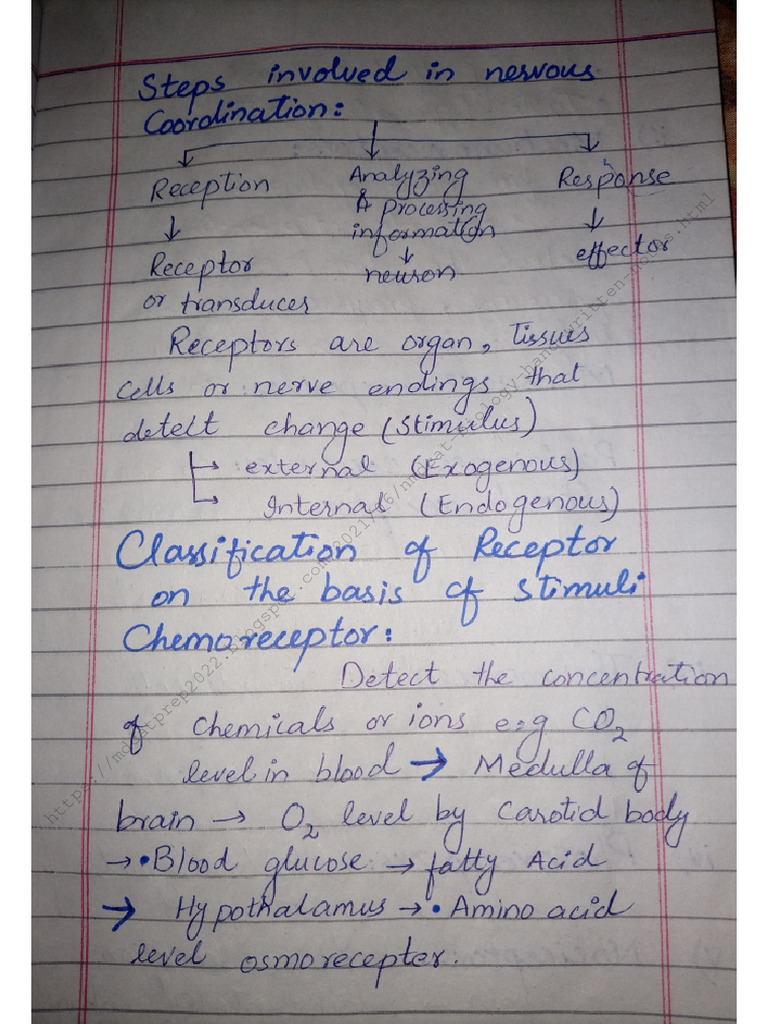 Steps involved in nervous
Coordination:
Reception Analyzing Response
& processing
information
Receptor neuron effector
or transduces
Receptors are organ, tissues
cells or nerve endings that
detect change (Stimulus)
external (Exogenous)
Internal (Endogenous)
Classification of Receptor
on the basis of stimuli
Chemoreceptor:
Detect the concentration
of chemicals or ions e:g CO2
level in blood → Medulla of
brain → O2 level by Carotid body
→ • Blood glucose → fatty Acid
→ Hypothalamus → • Amino acid
level osmorecepter.
https://mdcatprep2022.blogspot.com/2021/06/nmdcat-biology-hand-written-notes.html